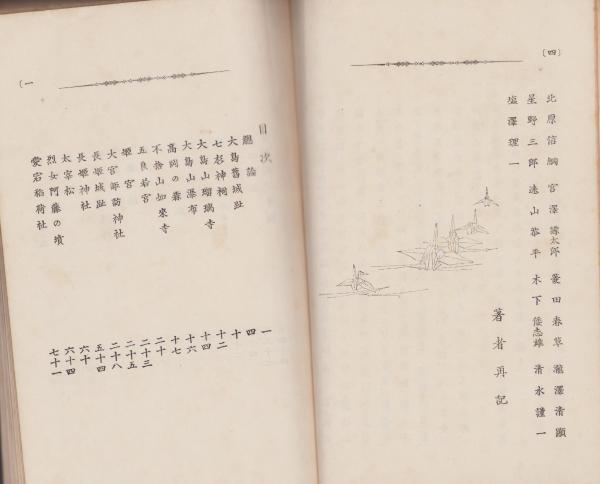 (四)
北原信綱 宮澤 太郎 菱田春草 瀧澤清顯
星野三郎 遠山恭平 木下 雄 清水謹一
塩澤理一
著者再記
(一
目次
總論 一
大島舊城趾 四
七杉神祠 十
大島山瑠璃寺 十二
大島山瀑布 十四
高岡の森 十六
不捨山如來寺 十七
五良若宮 二十
姬宮 二十三
大宮諏訪神社 二十五
長姬城趾 二十八
長姬神社 五十四
太宰松 六十
烈女阿藤の墳 六十四
愛宕稻荷社 七十一